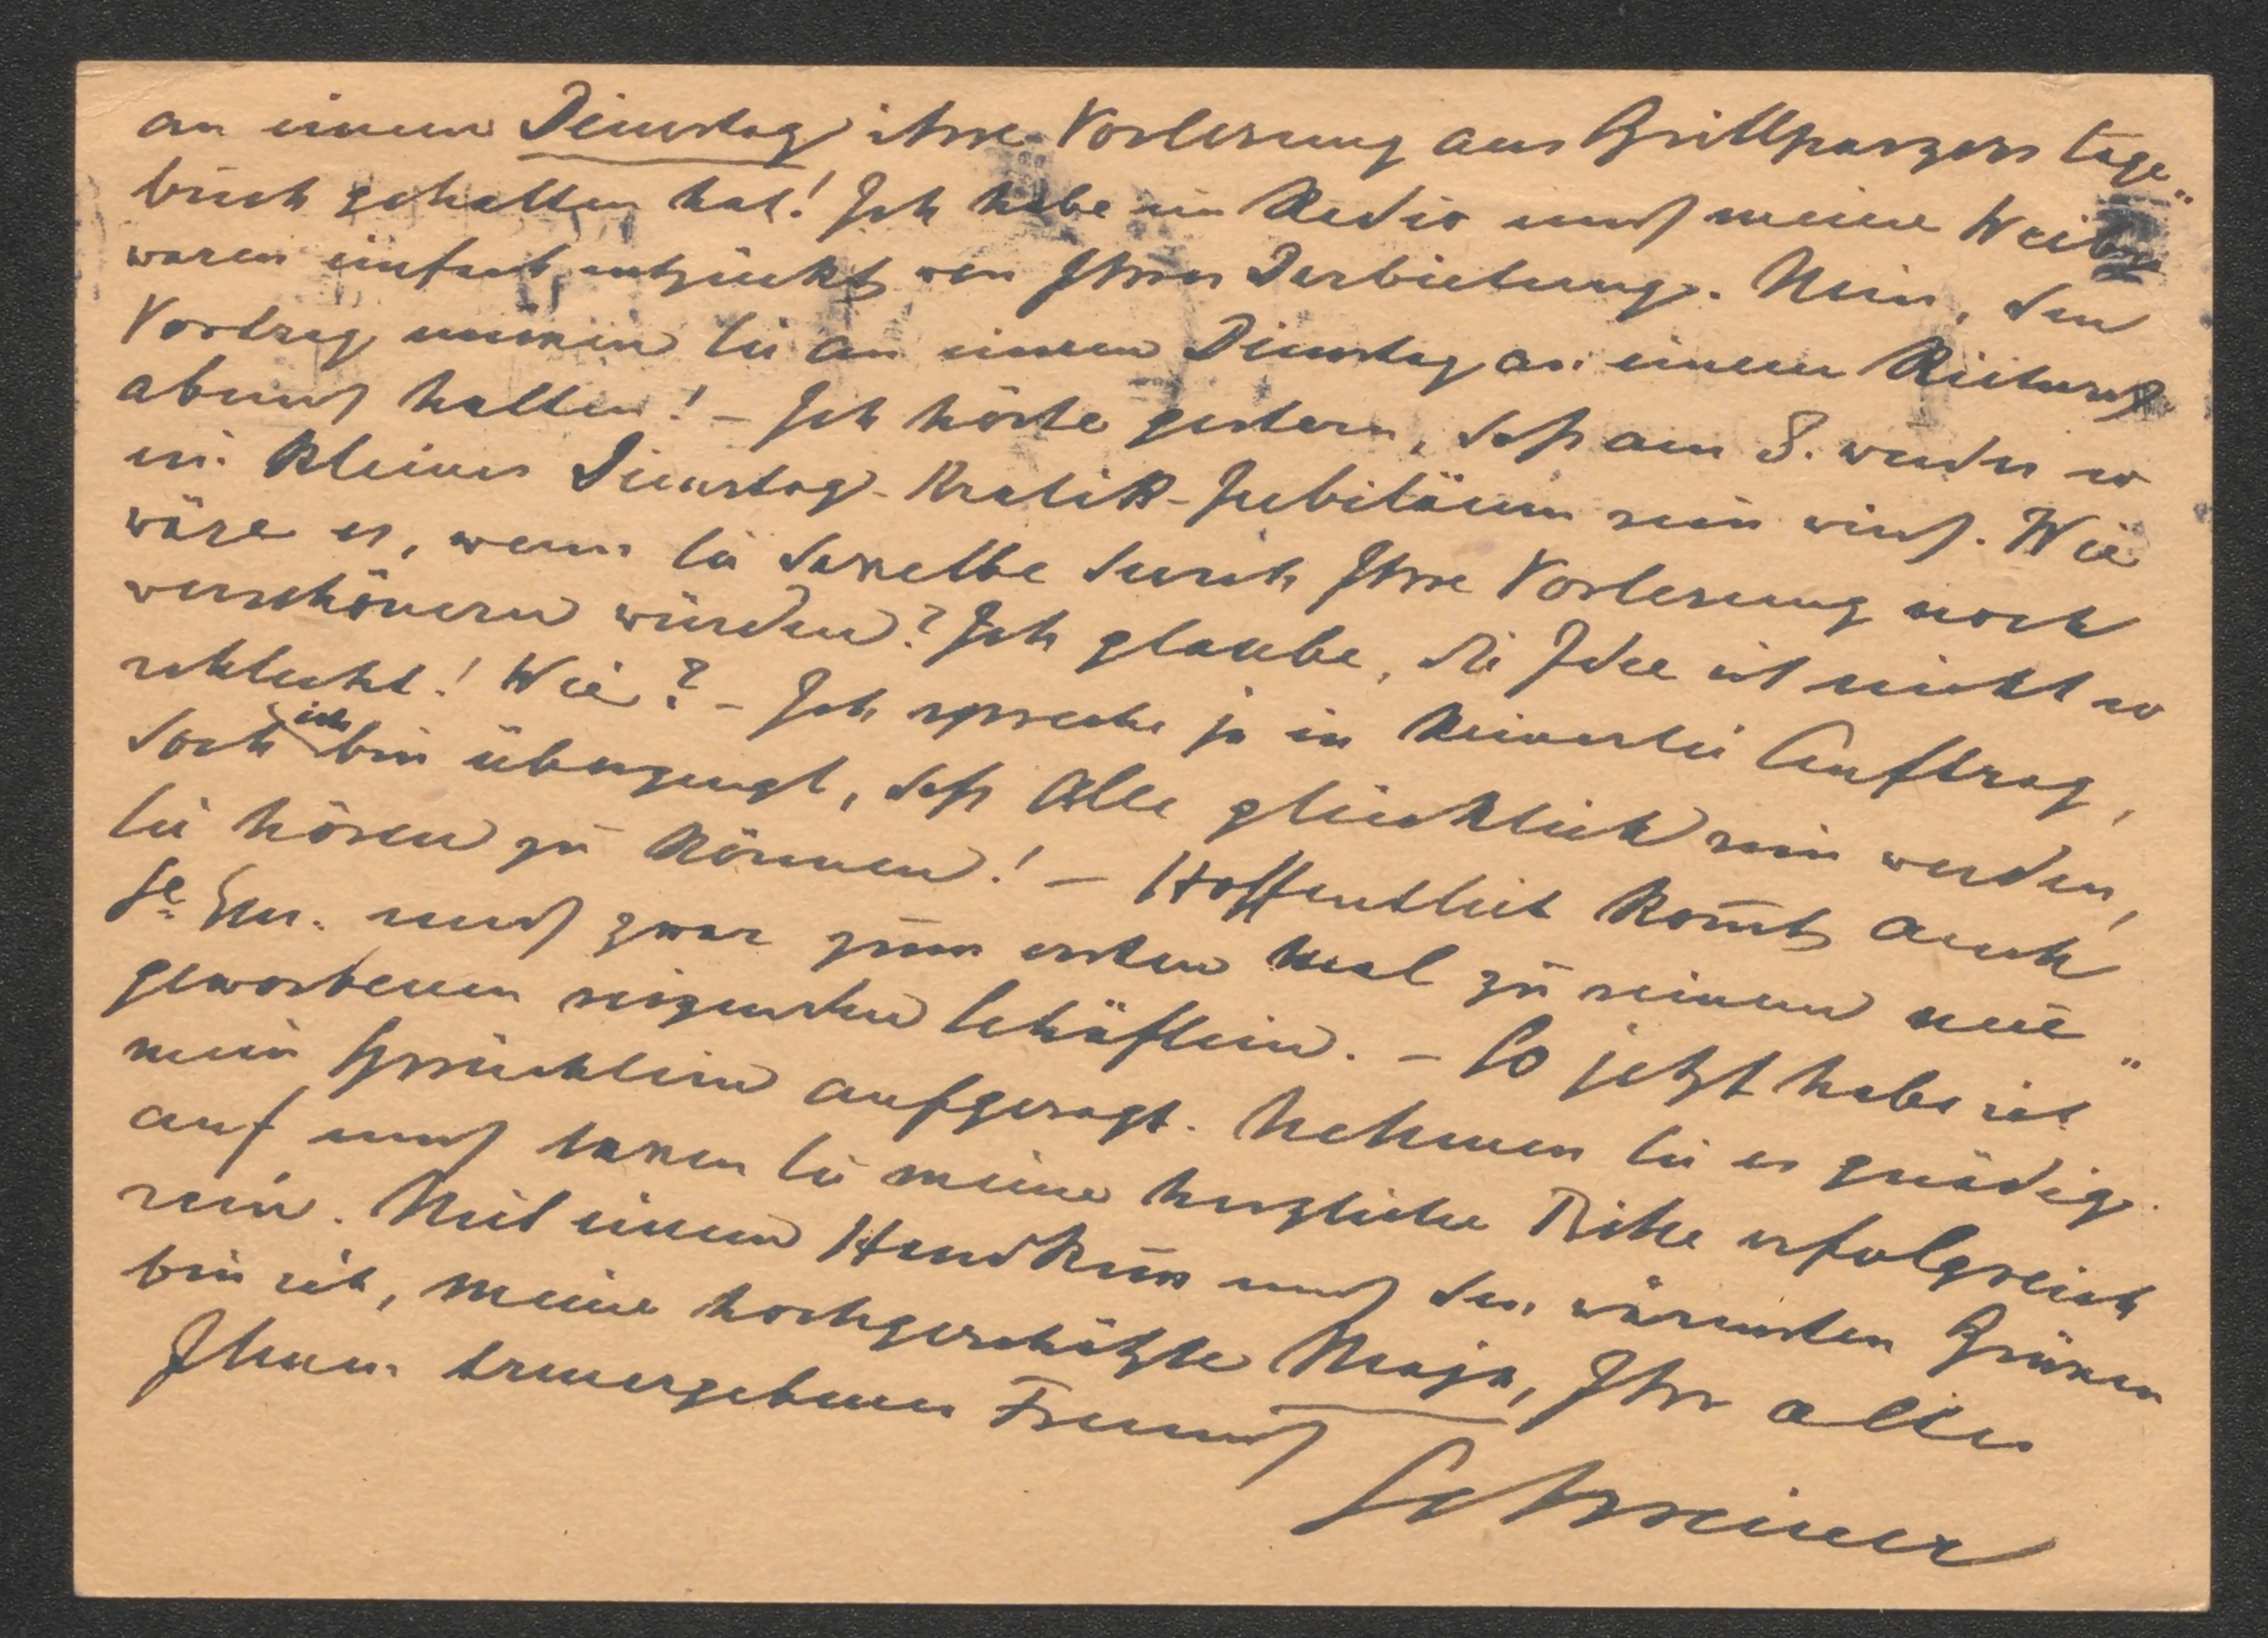 an einem Dienstag ihre Vorlesung aus Grillparzers Tage„
buch gehalten hat! Ich habe im Radio und meine Weiber
waren einfach entzückt von Ihrer Darbietung. Nein, den
Vortrag müssen Sie an einem Dienstag an einem
abend halten! – Ich hörte gestern, daß am 8. wieder so
ein kleines Dienstag-Kralik-Jubiläum sein wird. Wie
wäre es, wenn Sie dasselbe durch Ihre Vorlesung noch
verschönern würden? Ich glaube, die Idee ist nicht so
schlecht! Wie? – Ich spreche ja in keinerlei Auftrag,
doch ich bin überzeugt, daß Alle glücklich sein werden,
Sie hören zu können! – Hoffentlich kom̄t auch
Se. Em. und zwar zum ersten Mal zu seinen neu„
geworbenen Schäflein. – So jetzt habe ich
mein Sprüchlein aufgesagt. Nehmen Sie es gnädig
auf und lassen Sie meine herzliche Bitte erfolgreich
sein. Mit einem Handkuss und den wärmsten Grüssen
bin ich, meine hochgeschätzte Maja, Ihr alter
Ihnen treuergebener Freund
Schreiner